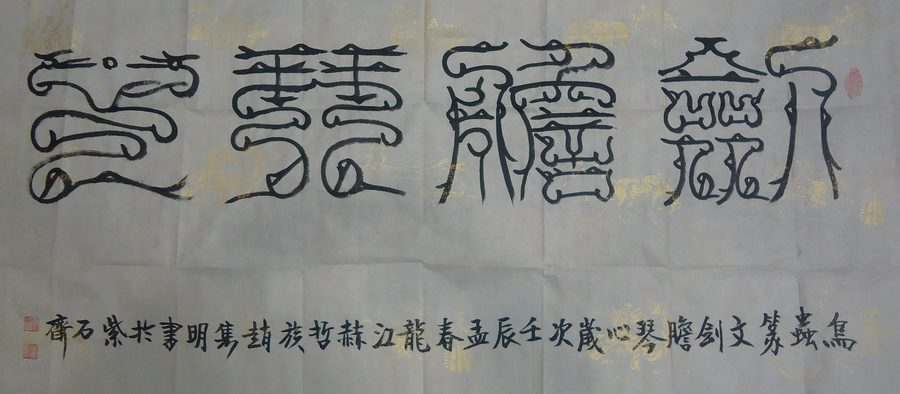 劍膽琴心
鳥蟲篆文劍膽琴心歲次壬辰孟春龍江赫哲族趙隽明書於紫石齊